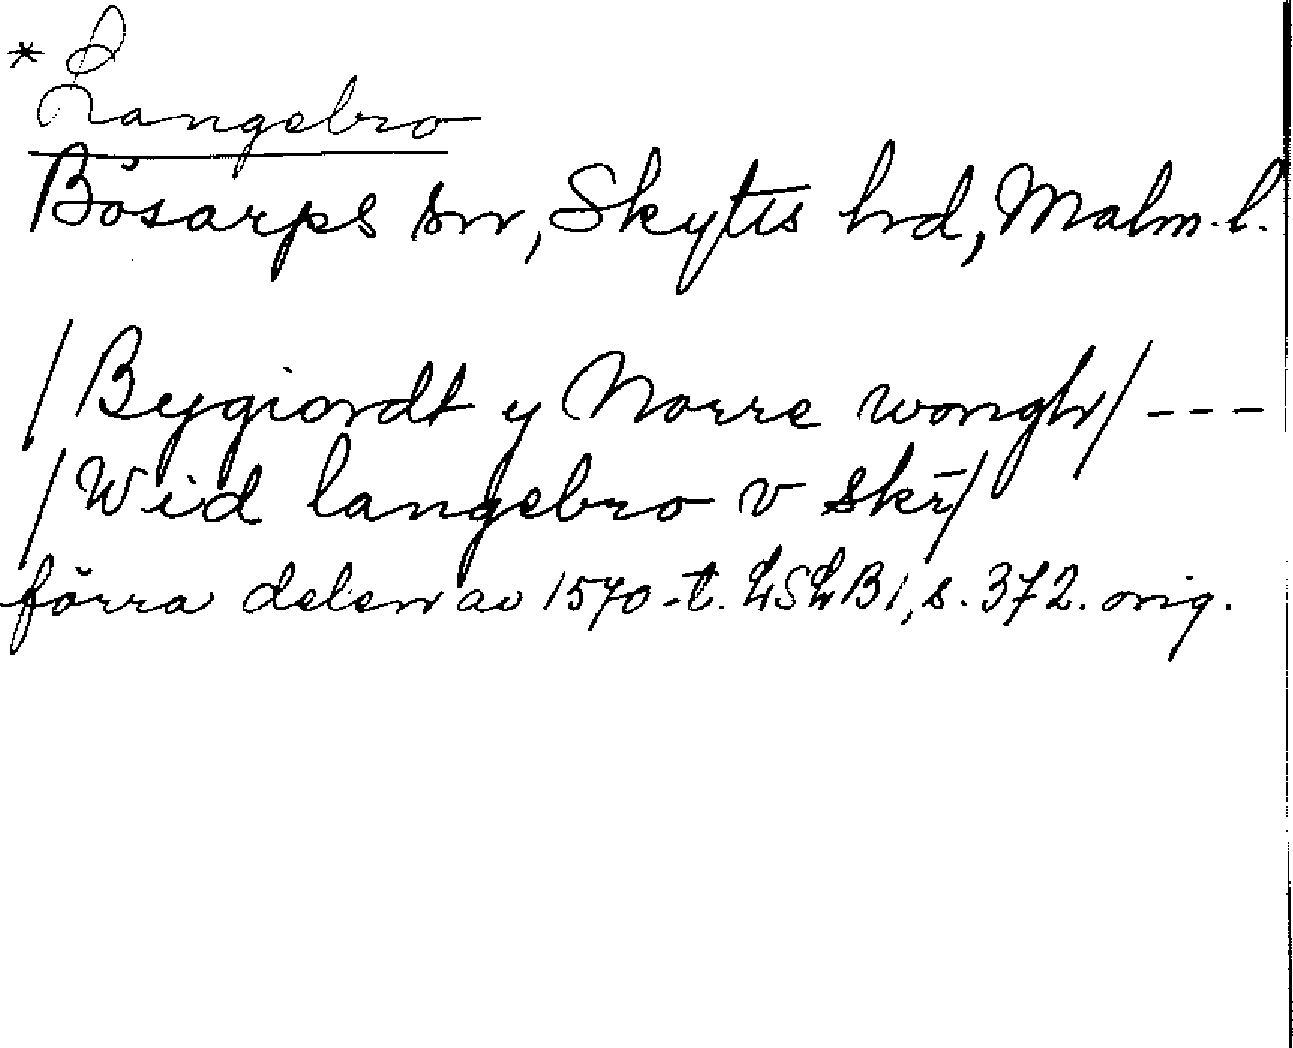 * Langebro
Bösarps sn, Skytts hd, Malm. l.
/Bygiordt y Norre wongh/ - - -
/Wid langebro v skr̄/
förra delen av 1570-t. LSLB1, s. 372. orig.